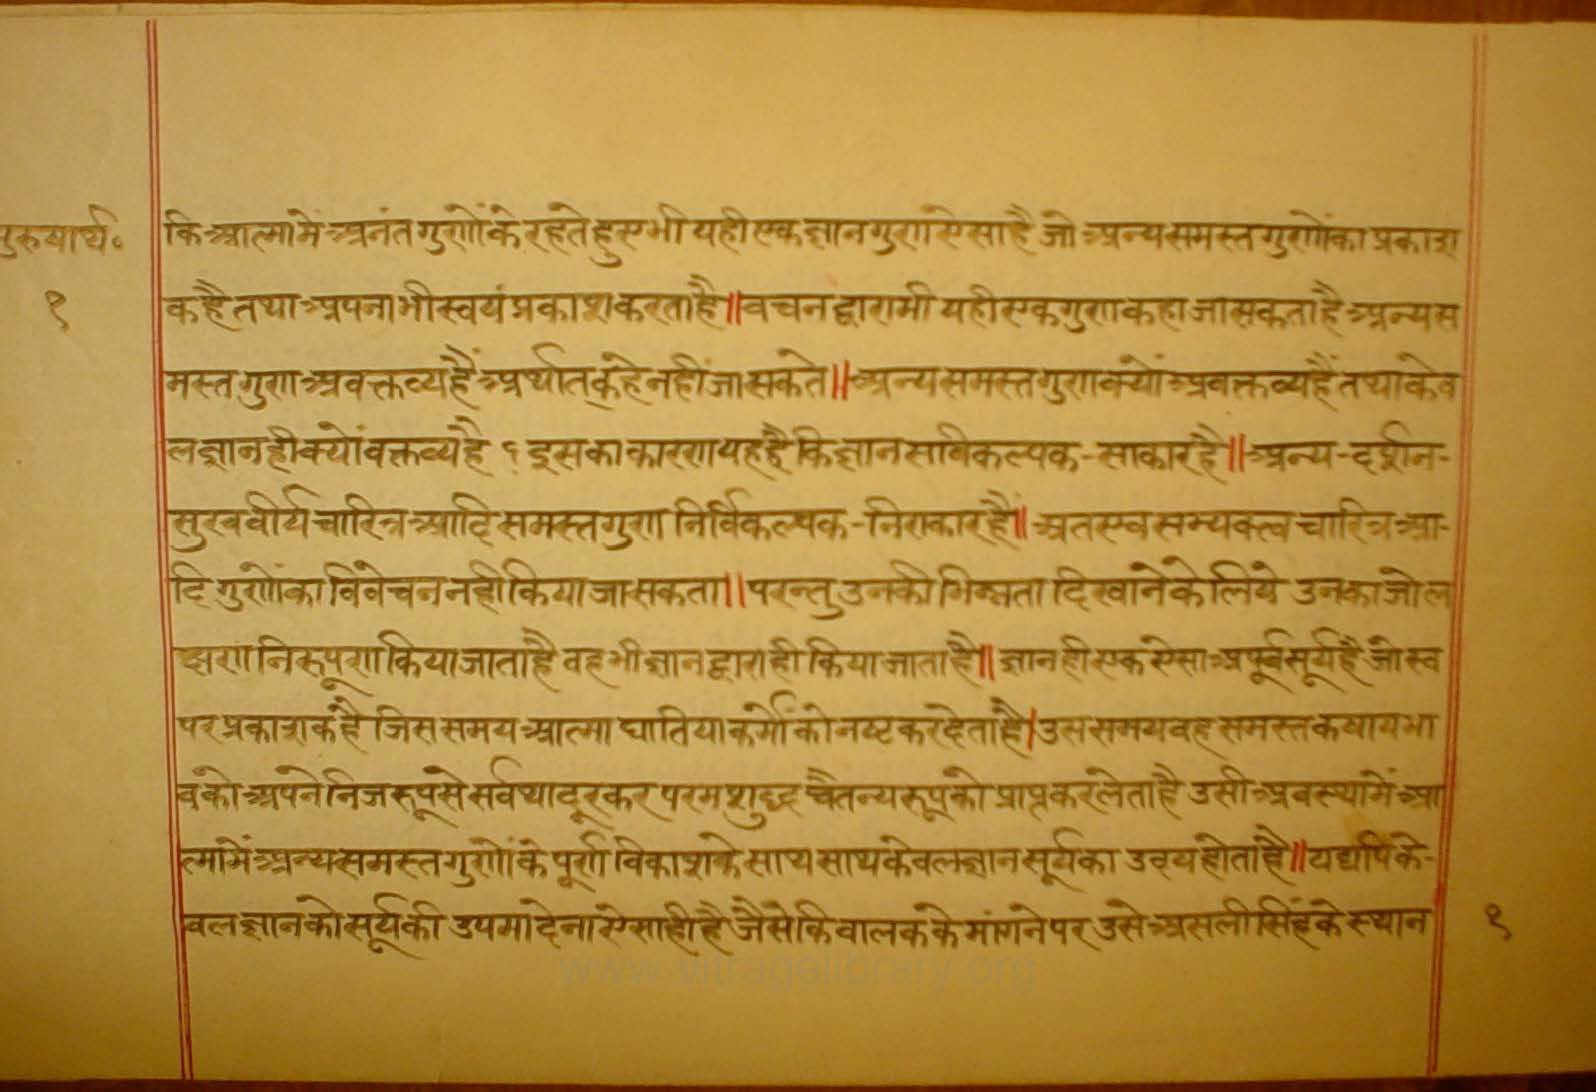 पुरुषार्थ॰
१
कि आत्मामें अनंत गुणोंके रहते हुए भी यही एक ज्ञान गुण ऐसा है जो अन्य समस्त गुणोंका प्रकाश
क है तथा अपना भी स्वयं प्रकाश करता है॥ वचन द्वारा भी यही एक गुण कहा जा सकता है अन्य स
मस्त गुण अवक्तव्य हैं अर्थात् कहे नहीं जा सकते॥ अन्य समस्त गुण क्यों अवक्तव्य हैं तथा केव
ल ज्ञान ही क्यों वक्तव्य है ? इसका कारण यह है कि ज्ञान सविकल्पक-साकार है॥ अन्य-दर्शन-
सुख वीर्य चारित्र आदि समस्त गुण निर्विकल्पक-निराकार हैं॥ अतएव सम्यक्त्व चारित्र आ-
दि गुणोंका विवेचन नही किया जा सकता॥ परन्तु उनकी भिन्नता दिखाने के लिये उनका जो ल
क्षण निरूपण किया जाता है वह भी ज्ञान द्वारा ही किया जाता है॥ ज्ञान ही एक ऐसा अपूर्व सूर्य है जो स्व
पर प्रकाशक है जिस समय आत्मा घातिया कर्मोंको नष्ट कर देता है। उस समय वह समस्त कषाय भा
वको अपने निज रूपसे सर्वथा दूरकर परम शुद्ध चैतन्य रूपको प्राप्त कर लेता है उसी अवस्थामें आ
त्मामें अन्य समस्त गुणोंके पूर्ण विकाशके साथ साथ केवलज्ञान सूर्यका उदय होता है॥ यद्यपि के-
वल ज्ञानको सूर्यकी उपमा देना ऐसा ही है जैसे कि वालक के मांगने पर उसे असली सिंहके स्थान
१
www.vitragelibrary.org